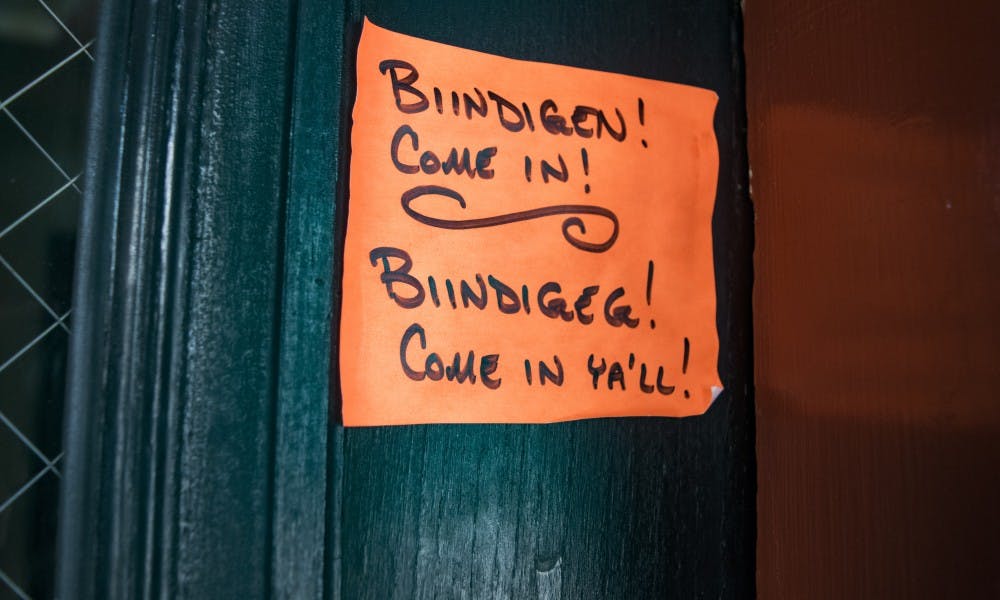 BIINDIGEN!
COME IN!
BIINDIGEG!
COME IN YA'LL!